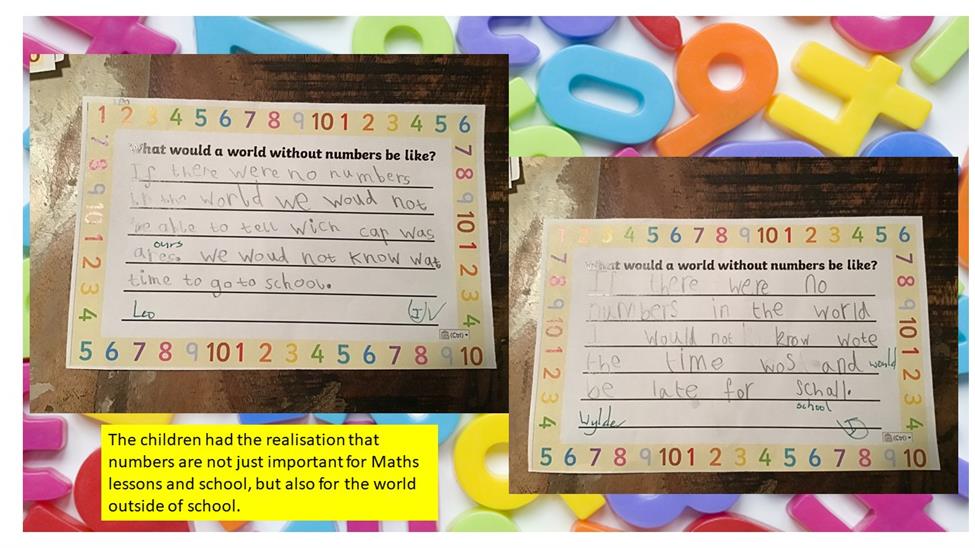 1 2 3 4 5 6 7 8 9 10 1 2 3 4 5 6
What would a world without numbers be like?
If there were no numbers
in the world we woud not
be able to tell wich cap was
ours
ares. we woud not know wat
time to go to school.
Leo
(I) V
7 8 9 10 1 2 3 4
7 8 9 10 1 2 3 4
5 6 7 8 9 10 1 2 3 4 5 6 7 8 9 10
(Ctrl)
1 2 3 4 5 6 7 8 9 10 1 2 3 4 5 6
What would a world without numbers be like?
If there were no
numbers in the world
I would not know wote
the time wos and would
be late for schall.
school
Wylder
I
7 8 9 10 1 2 3 4
7 8 9 10 1 2 3 4
5 6 7 8 9 10 1 2 3 4 5 6 7 8 9 10
(Ctrl)
The children had the realisation that
numbers are not just important for Maths
lessons and school, but also for the world
outside of school.
0 9 4